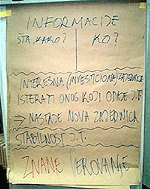 INFORMACIDE
ŠTA, KAKO? KO?
INTERESNA (INVESTICIONA) ZAJEDNICA
ISTERATI ONOG KOJI ODAJE J.T.
→ NASTAJE NOVA ZAJEDNICA
STABILNOST J.T.
ZNANJE VEROVANJE